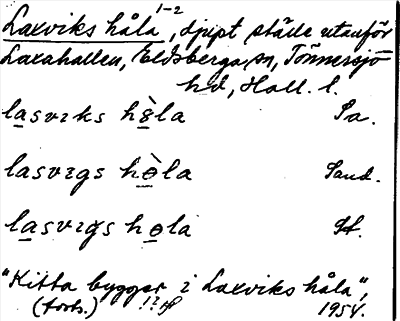 Laxviks håla 1-2, djupt ställe utanför
Laxahallen, Eldsberga sn, Tönnersjö
hd, Hall. l.
lasvɪks hə̀la Pa.
lasvɪgs hɵ̀la Sand.
lasvɪgs hɵla St.
"Kitta bygger i Laxviks håla",
(forts.) !? 1954.